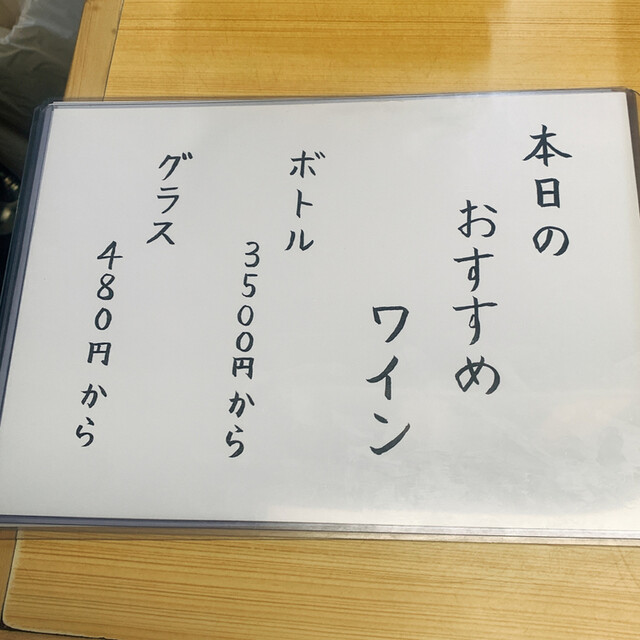 本日の
おすすめ
ワイン
ボトル
3500円から
グラス
480円から